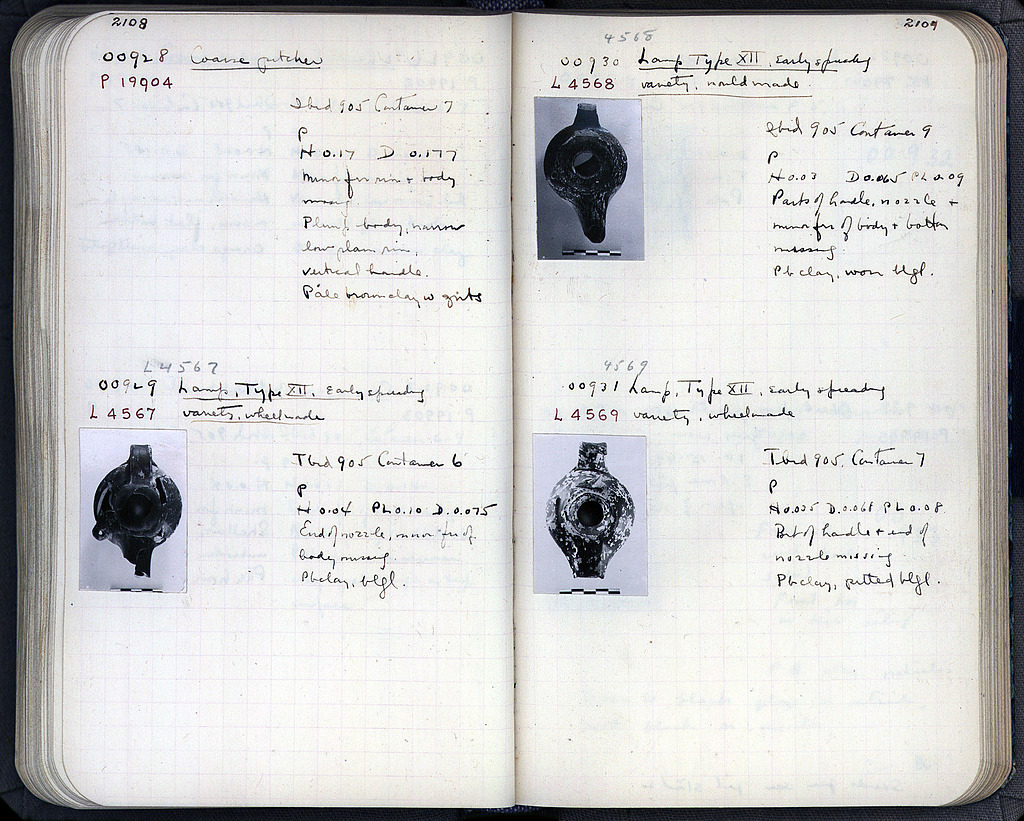 2108
OO928 Coarse pitcher
P 19904
Ibid 905 Container 7
P
H 0.17 D 0.177
Minor frr rim + body
missing
Plump body, narrow
low plain rim,
vertical handle.
Pale brown clay w grits
L 4567
OO929 Lamp, Type XII, early spreading
L 4567 variety, wheelmade
Ibid 905 Container 6
P
H 0.04 PL 0.10 D. 0.075
End of nozzle, minor frr of
body missing.
Pb clay, blgl.
2109
4568
OO930 Lamp Type XII, early spreading
L 4568 variety, mouldmade
Ibid 905 Container 9
P
H 0.03 D 0.065 PL 0.09
Parts of handle, nozzle +
minor frr of body + bottom
missing.
Pb clay, worn blgl.
4569
OO931 Lamp, Type XII, early spreading
L 4569 variety, wheelmade
Ibid 905, Container 7
P
H 0.035 D. 0.068 PL 0.08
Bit of handle + end of
nozzle missing
Pb clay, pitted blgl.